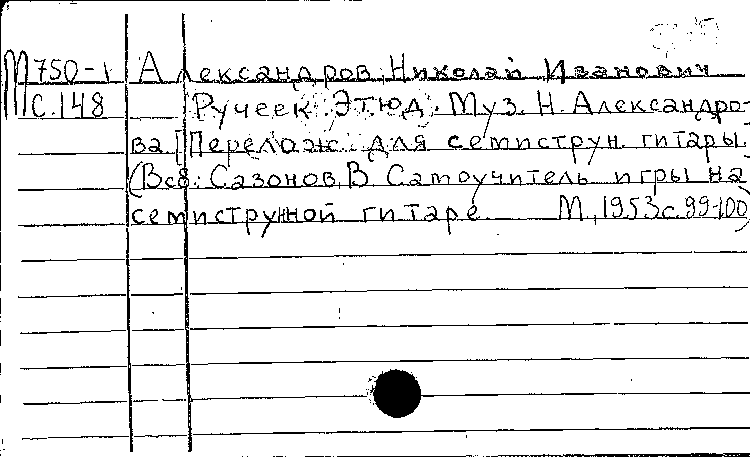 М750-1 Александров, Николай Иванович
с.148 Ручеек. Этюд. Муз. Н. Александро-
ва. [Перелож. для семиструн. гитары.
(В сб.: Сазонов, В. Самоучитель игры на
семиструнной гитаре. М., 1953 с. 99-100)